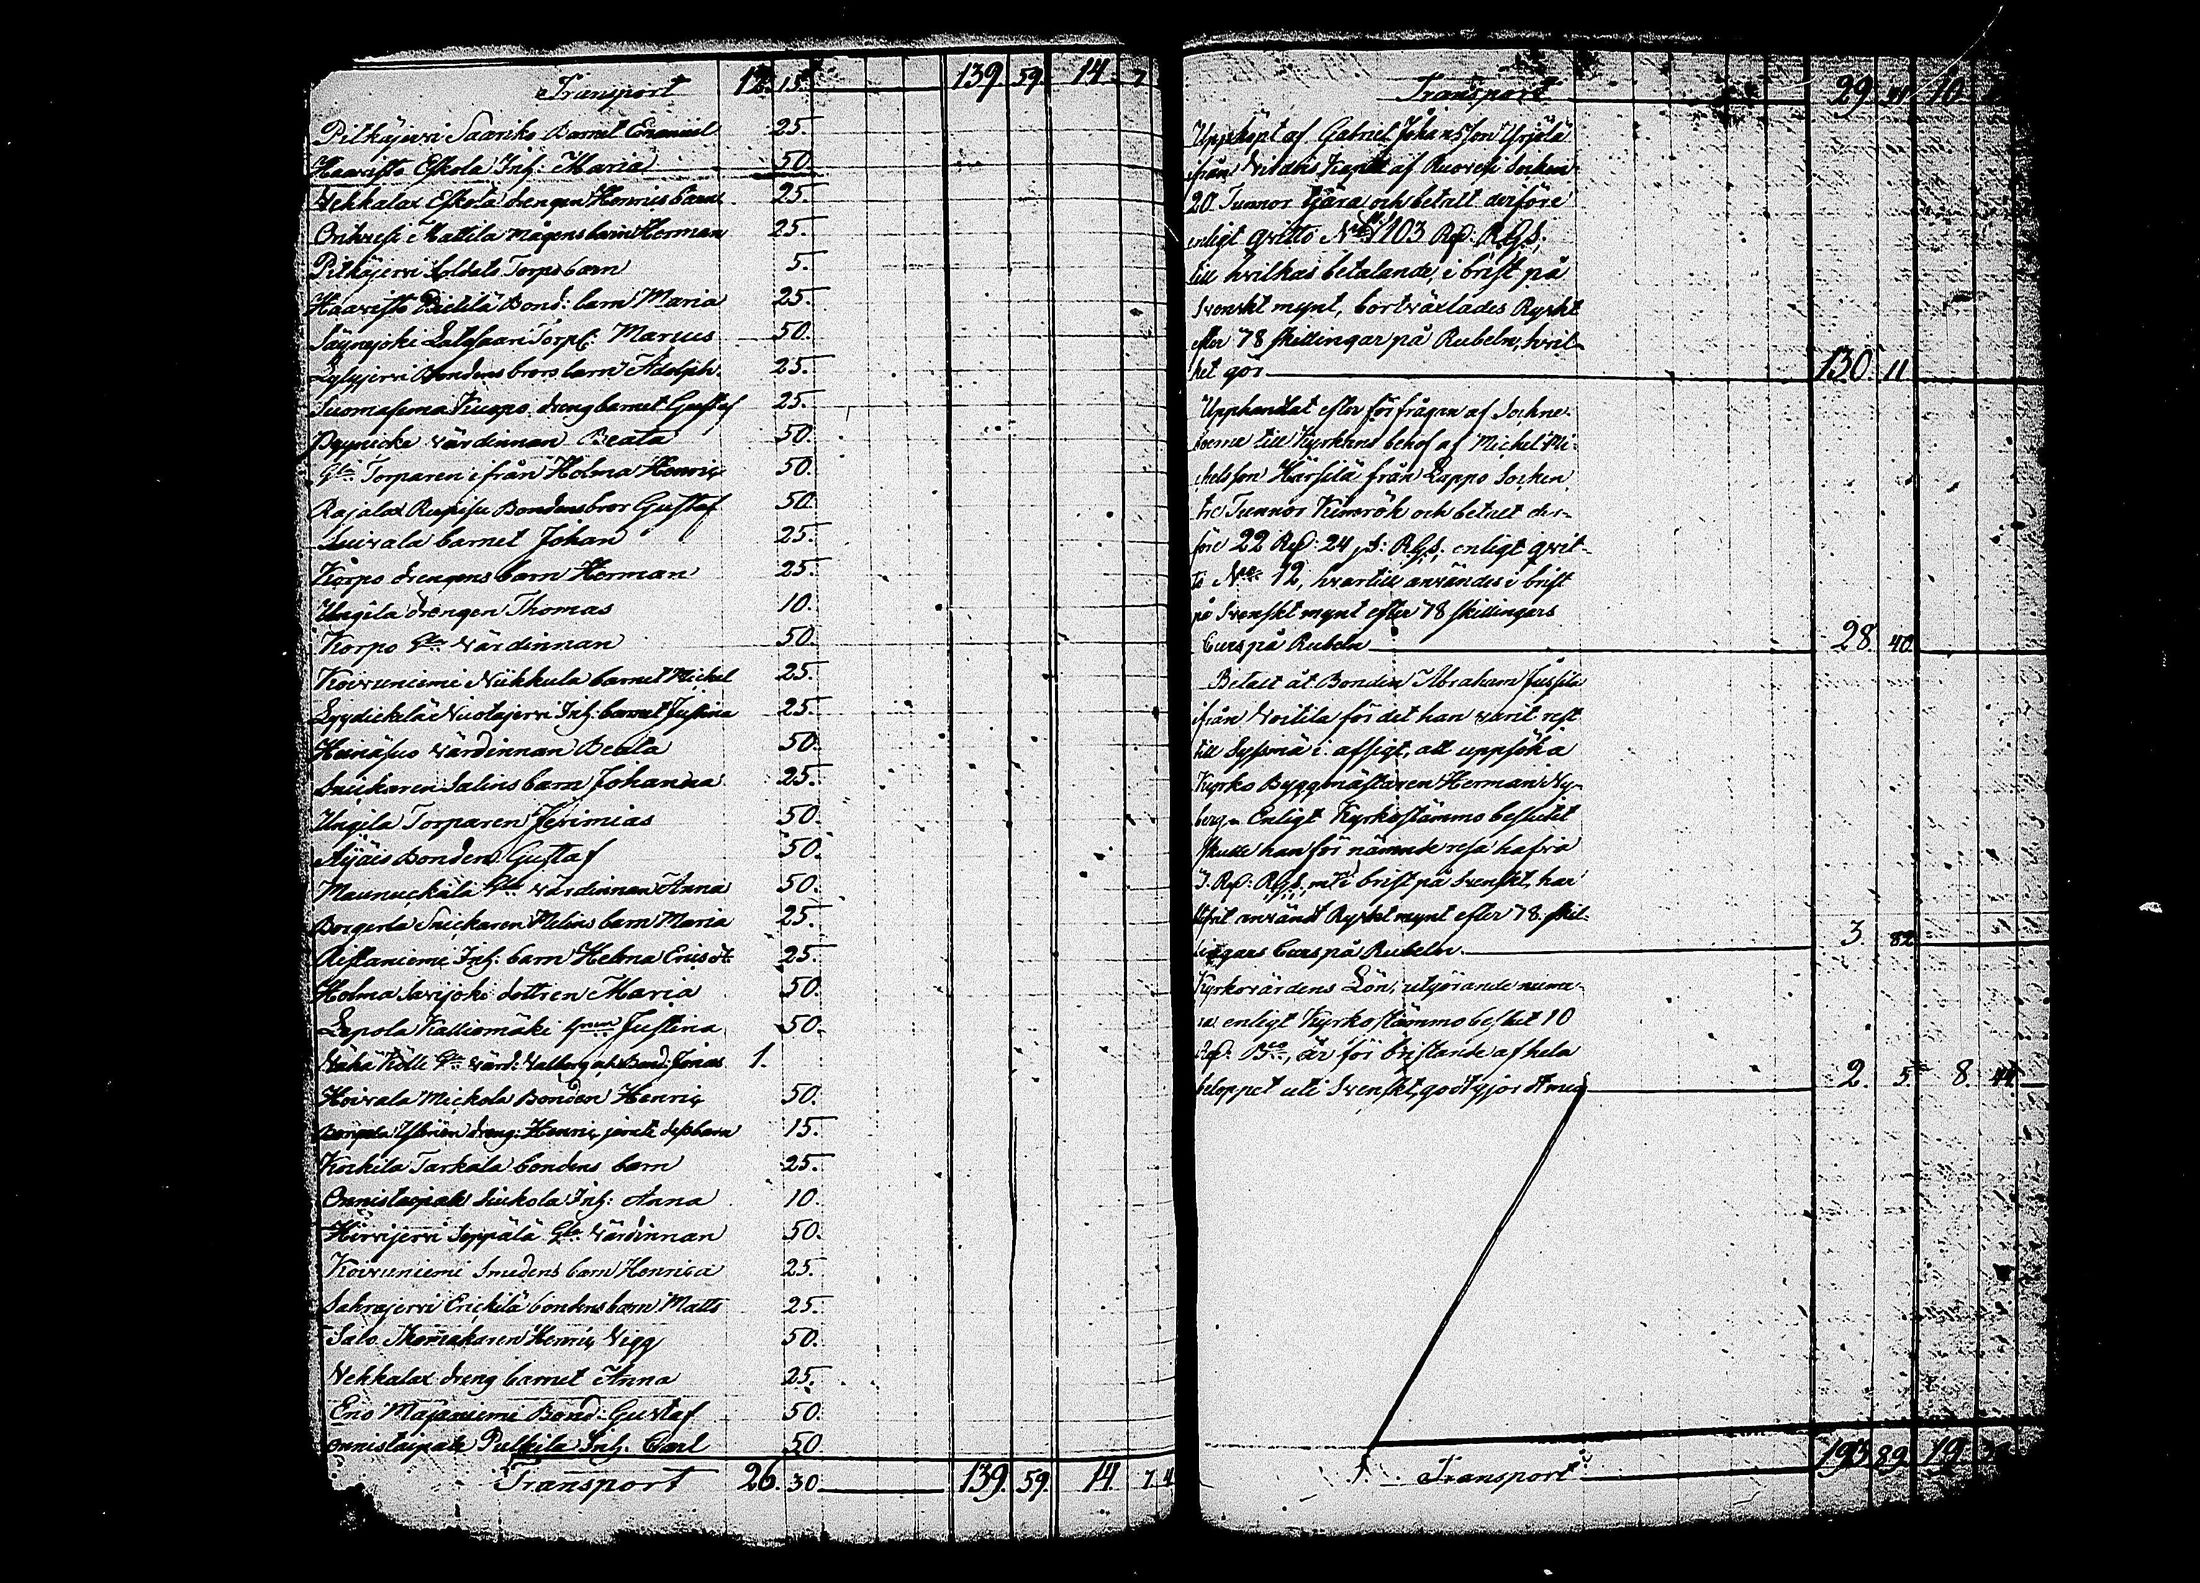 Transport 12. 15. 139. 59. 14. 7
Pitkäjervi Saariko Barnet Emanuel 25.
Haavisto Eskola Inh: Maria 50.
Vekkalax Eskola drengen Henrics barn 25.
Orihvesi Mattila mågens barn Herman 25.
Pitkäjervi Soldats Torps barn 5.
Haavisto Pietilä Bond: barn Maria 25.
Säynejoki Latosaari Torp: Marcus 50.
Lylyjervi Bondens brors barn Adolph. 25.
Suomasema Kuopo drengbarnet Gustaf 25.
Pyynicke värdinnan Beata 50.
Gla Torparen ifrån Holma Henric 50.
Rajalax Rupisu Bondens bror Gustaf 50.
Suivala barnet Johan 25.
Korpo drengens barn Herman 25.
Ungila drengen Thomas 10.
Korpo Gla värdinnan 50.
Koivuniemi Nikkula barnet Michel 25.
Lyydickilä Nuotajervi Inh: barnet Justina 25.
Heinäsuo värdinnan Beata 50.
Snickaren Salins barn Johanna 25.
Ungila Torparen Jerimias 50.
Äijäis Bonden Gustaf 50.
Maunuckala Gla värdinnan Anna 50.
Borgerla Snickaren Melins barn Maria 25.
Ristaniemi Inh: barn Helena Ericsdr 25.
Holma Savijoki dottren Maria 50.
Lepola Kalliomäki Justina 50.
Vähä Kölli Gla värd: Valborg och Bond: Jonas 1.
Hoivala Mickola Bonden Henric 50.
dreng: Henric jemte dess barn 15.
Kockila Tarkala bondens barn 25.
Onnistaipale Siukola Inh: Anna 10.
Hirvijervi Seppälä Gla Värdinnan 50.
Koivuniemi Smedens barn Henrica 25.
Sahrajervi Erickilä bondens barn Matts 25.
Salo Skomakaren Henric Vigg 50.
Vekkalax dreng barnet Anna 25.
Eno Majaniemi Bond: Gustaf 50.
Onnistaipale Pulkila Inh: Carl 50
Transport 26. 30. 139. 59. 14. 7. 4
Transport 29. 10.
Uppköpt af Gabriel Johansson Yrjölä
ifrån Virdois Kapell af Ruovesi Socken
20 Tunnor tjära och betalt derföre
enligt qvitto No 11 103 Rd: R.G.S.
till hvilkas betalande, i brist på
Svenskt mynt, bortväxlades Ryskt
efter 78 skillingar på Rubeln, hvil-
ket gör 130. 11
Upphandlat efter förfrågan af Sockne-
boerne till Kyrkans behof af Michel Mi-
chelsson Härsilä från Lappo Socken
tre Tunnor Kimrök och betalt der-
före 22 Rd: 24 s: R.G.S. enligt qvit-
to No 12, hvartill användes i brist
på Svenskt mynt efter 78 skillingars
Curs på Rubeln 28. 40.
Betalt åt Bonden Abraham Jussila
ifrån Voitila för det han varit rest
till Sysmä i afsigt, att uppsöka
Kyrko Byggmästaren Herman Ny-
berg. Enligt Kyrkostämmo beslutet
skulle han för nämnde resa hafva
3. Rd: R.G.S. men i brist på Svenskt, har
blifvit användt Ryskt mynt efter 78 skil-
lingars Curs på Rubeln. 3. 82
Kyrkovärdens Lön, utgörande numer-
ra enligt Kyrkostämmo beslut 10
Rd: Bco, är för bristande af hela
beloppet uti Svenskt, godtgjordt med 2. 5. 8. 44
Transport 193. 89. 19.